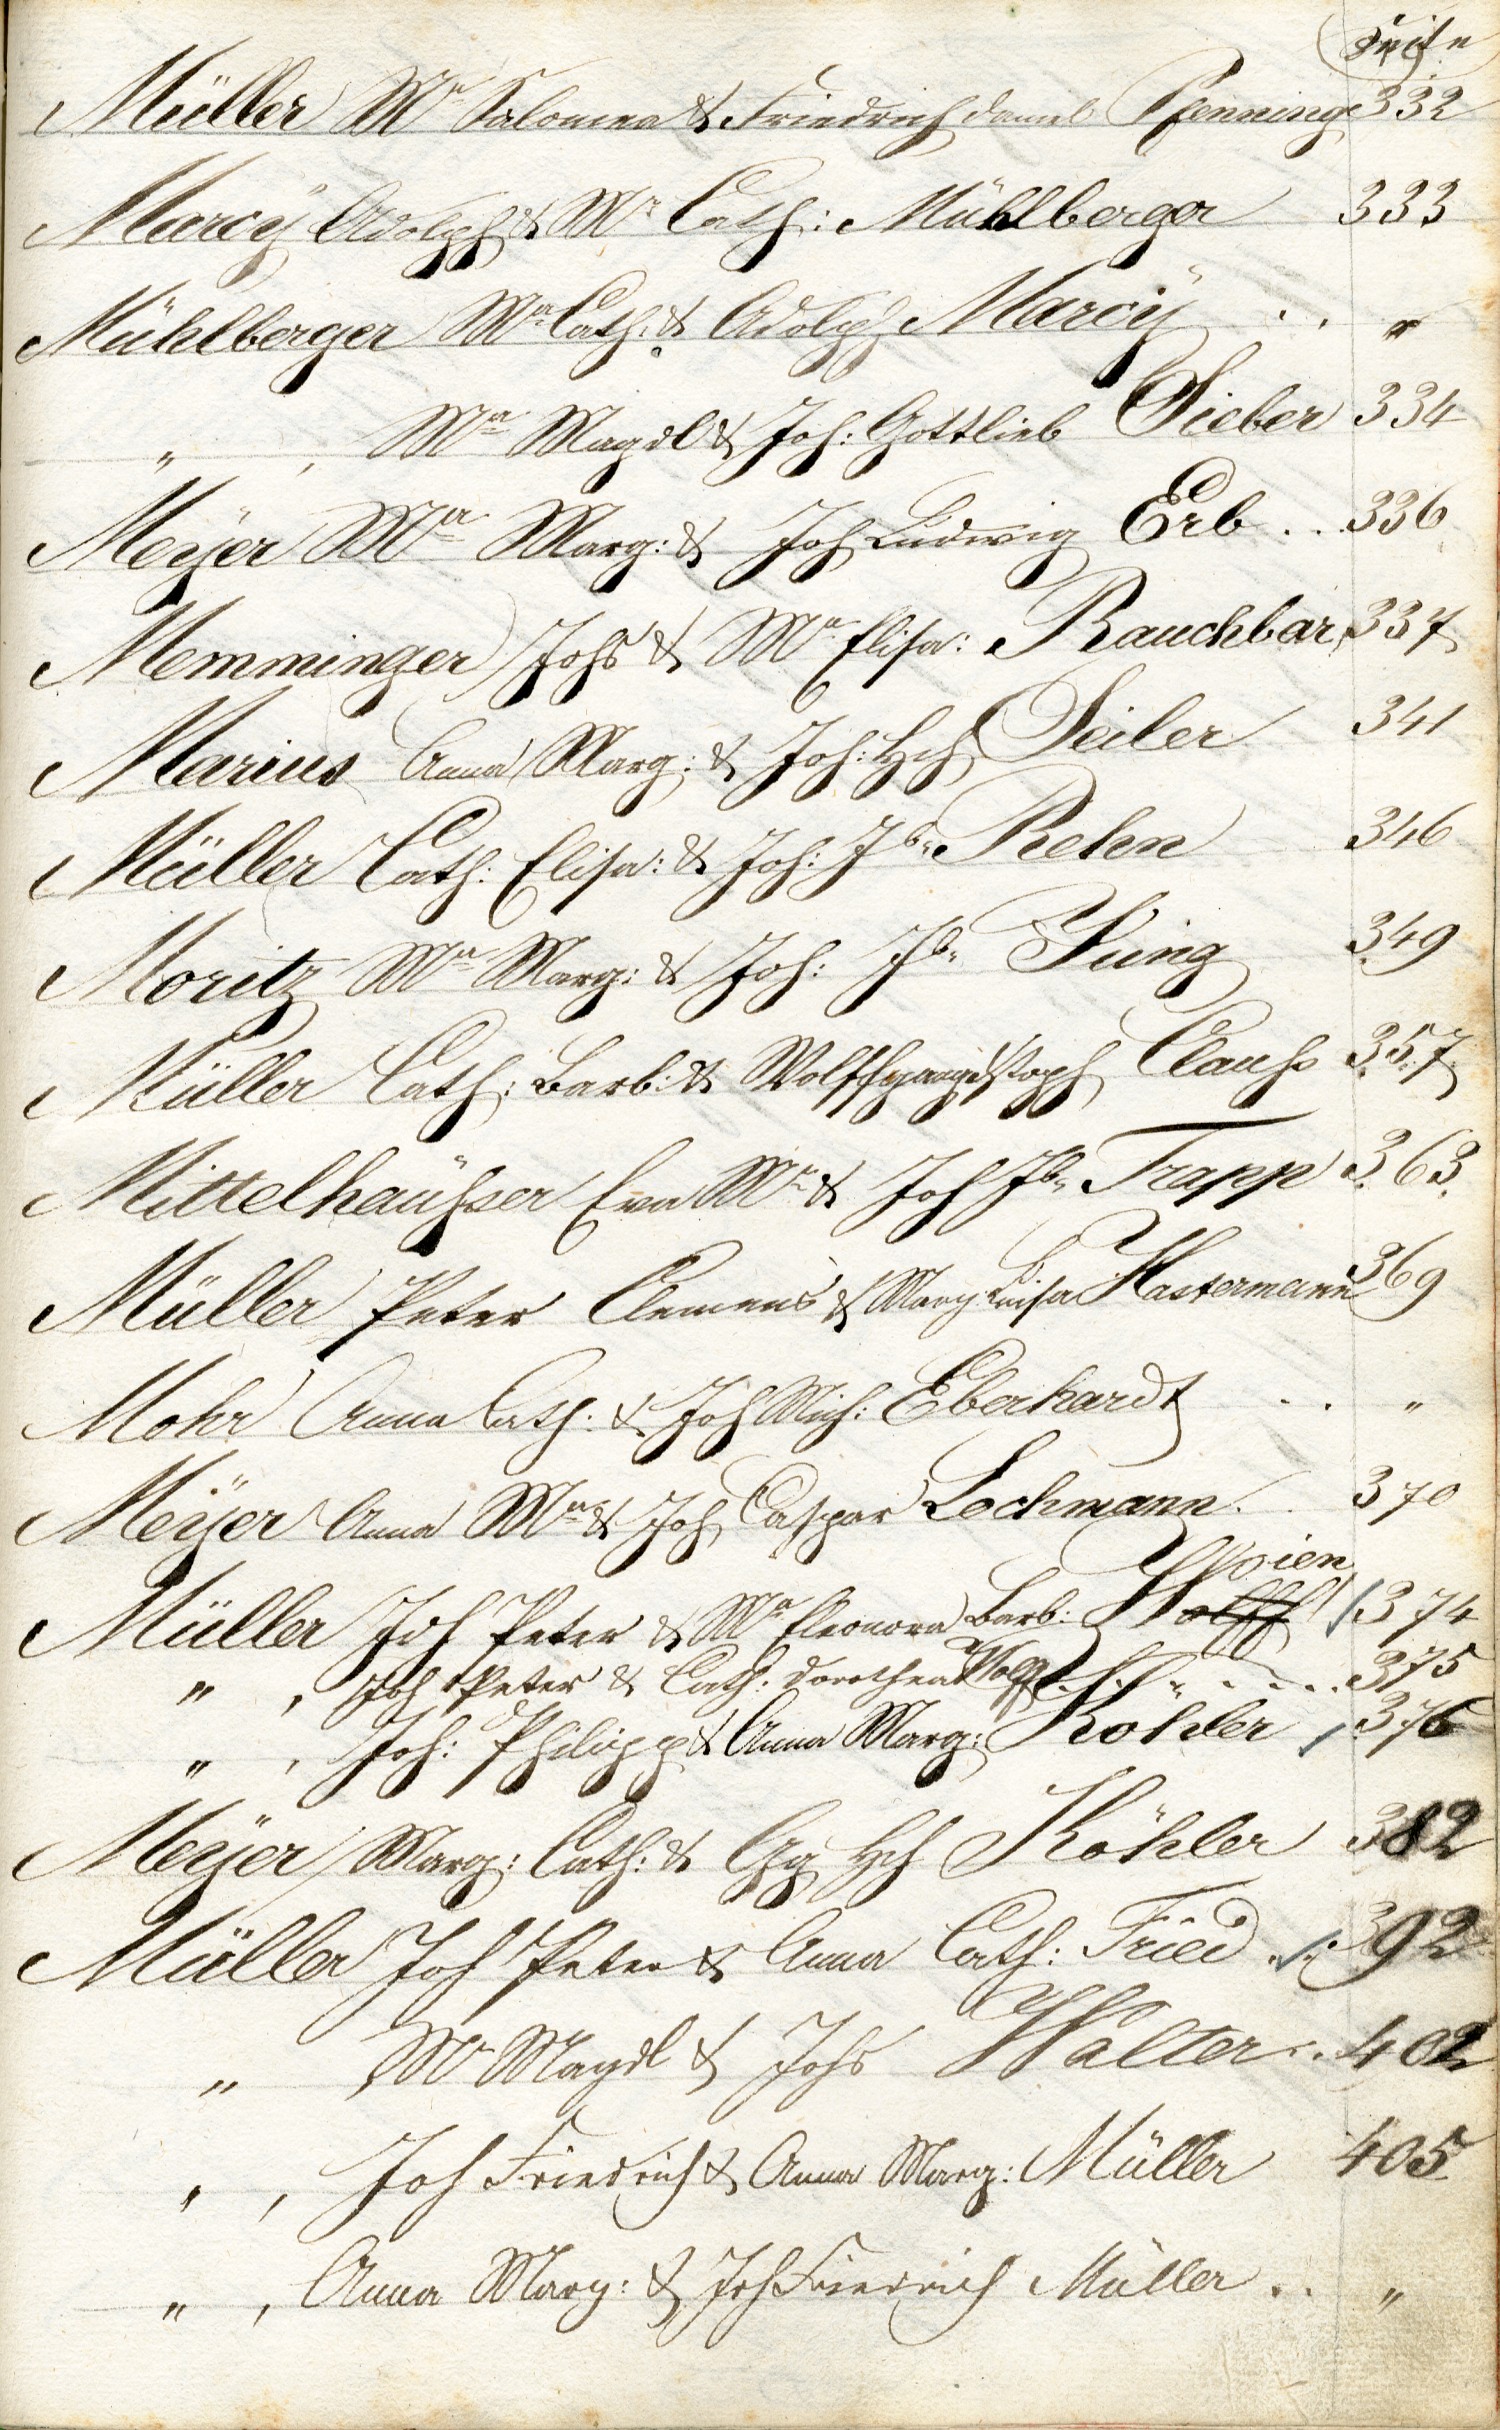 Seite
Müller Ma Salomea & Friedrich Daniel Pfenning 332
Marcÿ Adolph & Ma Cath: Mühlberger 333
Mühlberger Ma Cath: & Adolph Marcÿ . . "
" , Ma Magdl & Joh: Gottlieb Sieber 334
Meÿer Ma Marg: & Joh Ludwig Erb . . 336
Memminger Johs & Ma Elisa: Rauchbar 337
Marius Anna Marg: & Joh: Hch Seiler 341
Müller Cath: Elisa: & Joh: Jb: Rehn 346
Moritz Ma Marg: & Joh: Jb: Jung 349
Müller Cath: Barb: & Wolffgang Stoph Clauss 357
Mittelhaüsser Eva Ma & Joh Jb: Trapp 363
Müller Peter Clemens & Marg Luisa Hastermann 369
Mohr Anna Cath: & Joh Mich: Eberhardt . . "
Meÿer Anna Ma & Joh Caspar Lochmann . . 370
Woien
Müller Joh Peter & Ma Eleonora Barb: Wolff 374
" , Joh Peter & Cath: Dorothea Wolff . . . . 375
" , Joh: Philipp & Anna Marg: Köhler 376
Meÿer Marg: Cath: & Gg Hch Köhler 382
Müller Joh Peter & Anna Cath: Fried . . 392
" , Ma Magdl & Johs Walter . . 402
" , Joh Friedrich & Anna Marg: Müller 405
" , Anna Marg: & Joh Friedrich Müller . . "